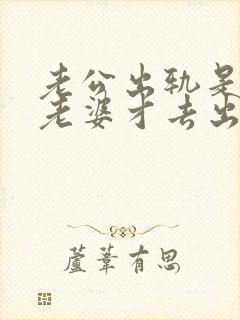 老公出轨是
老婆才去出
蘆葦有思